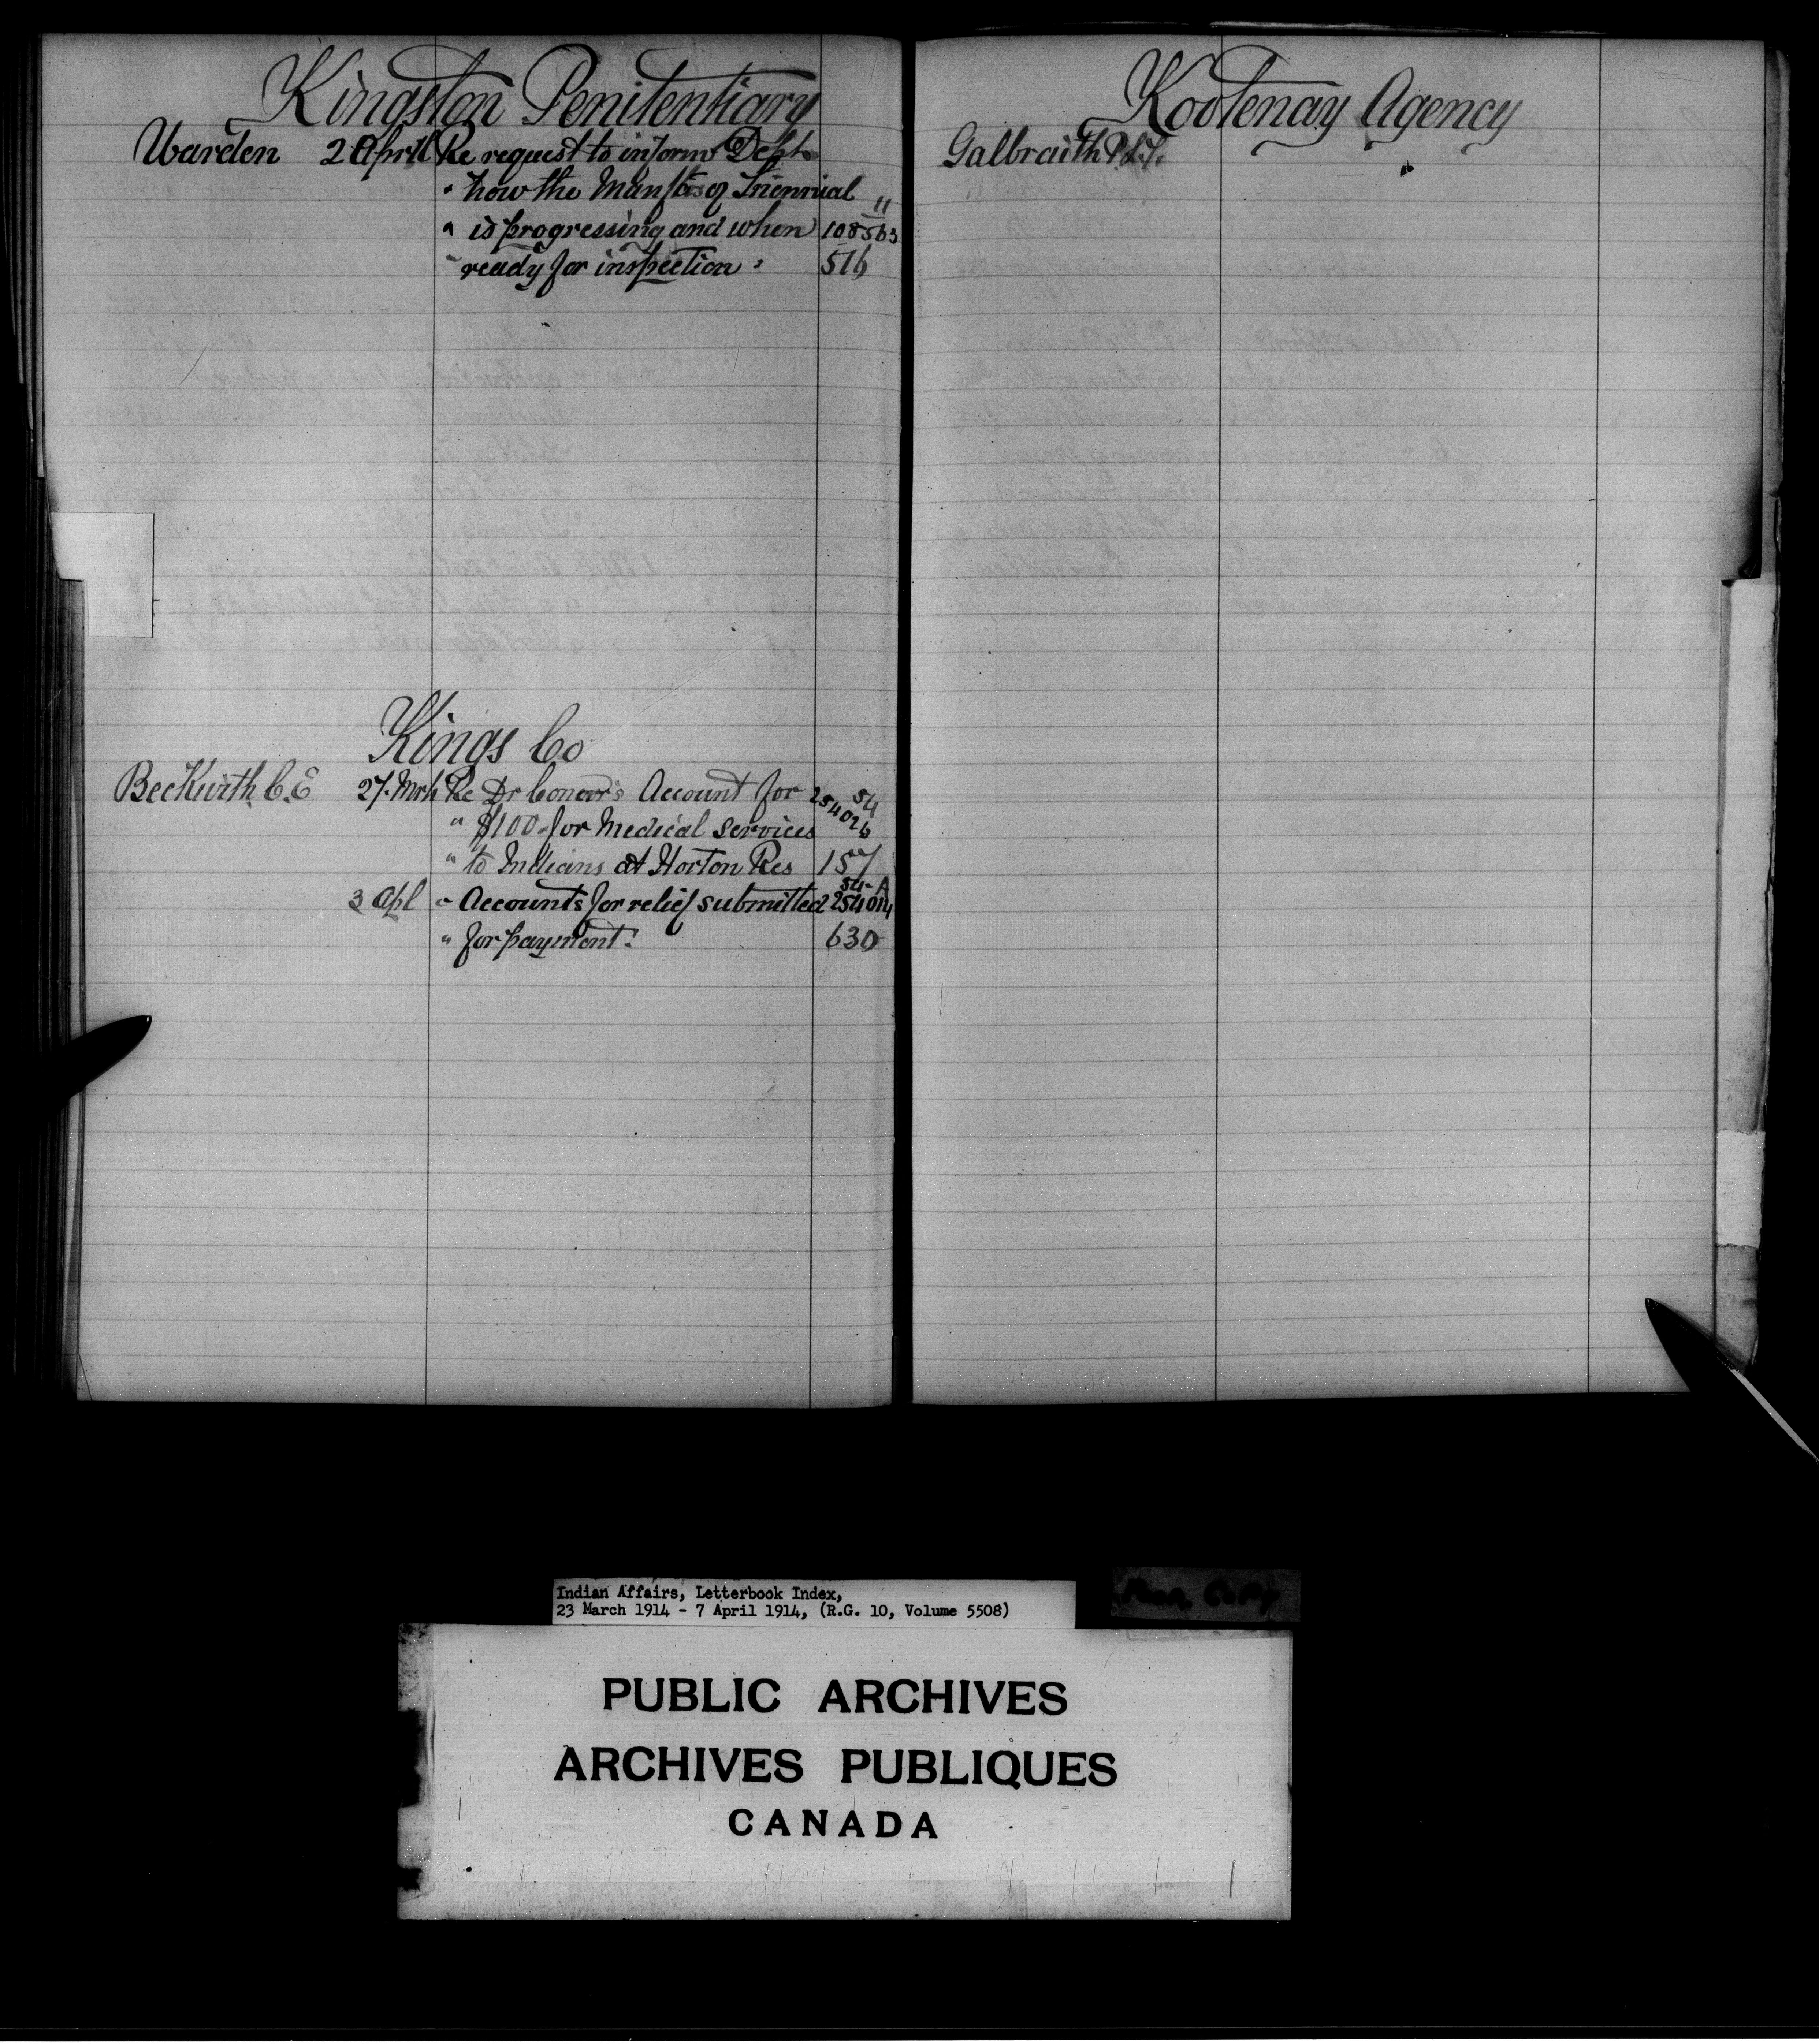 Kingston Penitentiary
Warden 2 April Re request to inform Dept
" how the Manftr of Triennial "
" is progressing and when 108563
" ready for inspection : 516
Kings Co
Beckwith C.E 27 Mrh Re Dr Conoor's Account for 54
" $100 for Medical services 254026
" to Indians at Horton Res 157
54-A
3 Apl " Accounts for relief submitted 254014
" for payment : 630
Kootenay Agency
Galbraith
Indian Affairs, Letterbook Index,
23 March 1914 - 7 April 1914, (R.G. 10, Volume 5508)
PUBLIC ARCHIVES
ARCHIVES PUBLIQUES
CANADA